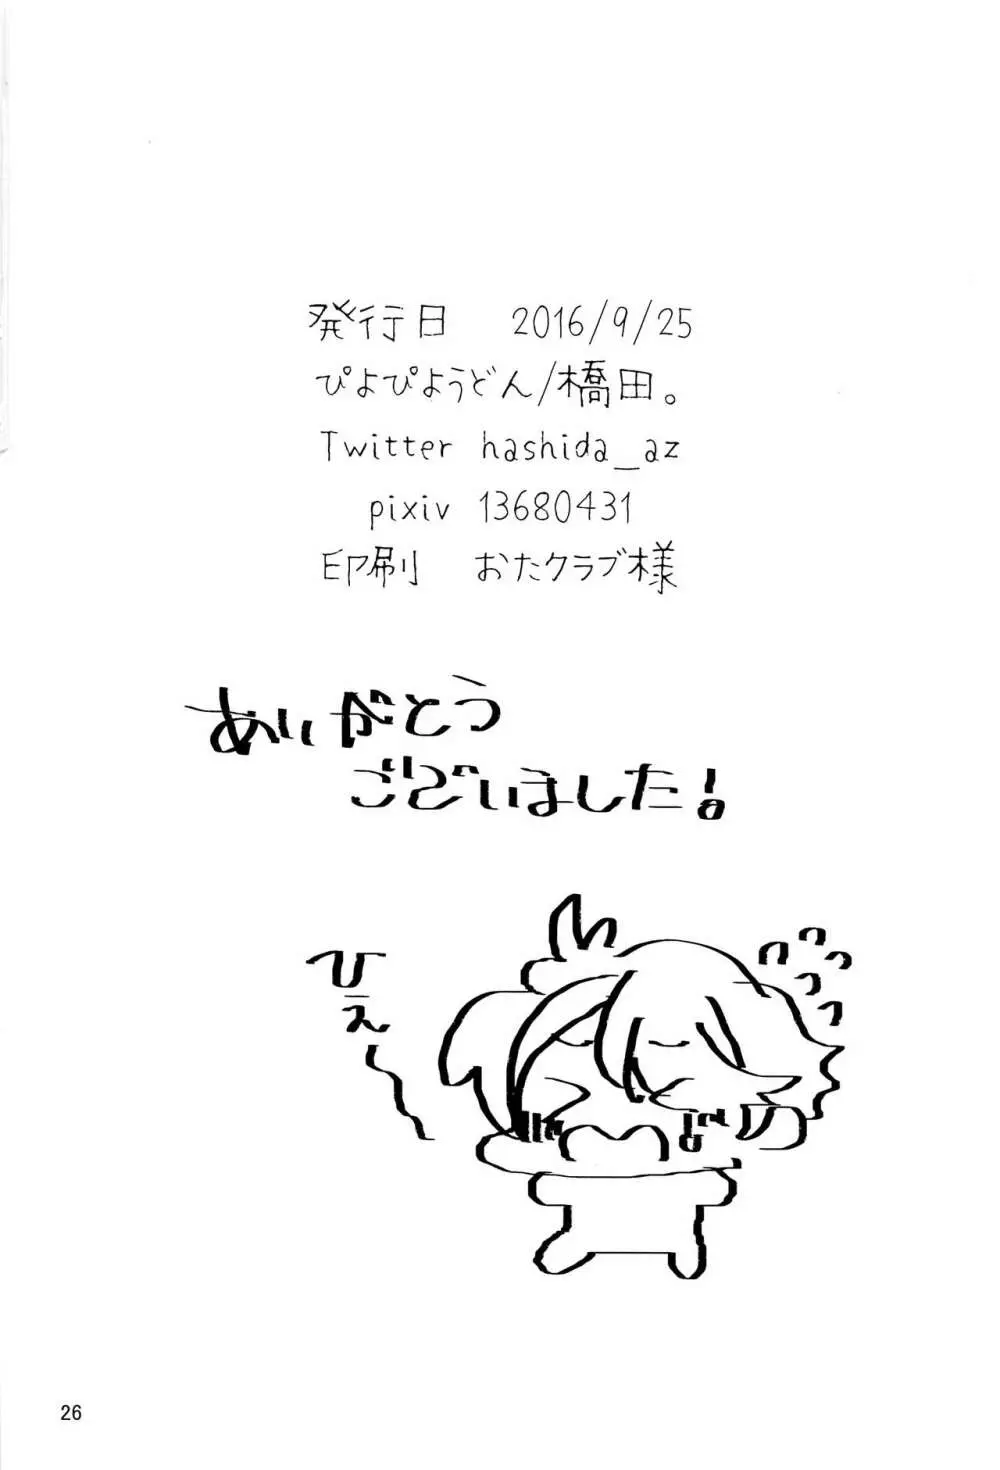 発行日 2016/9/25
ぴよぴようどん/橋田。
Twitter hashida_az
pixiv 13680431
印刷 おたクラブ様
ありがとう
ございました!
ひえ〜
26